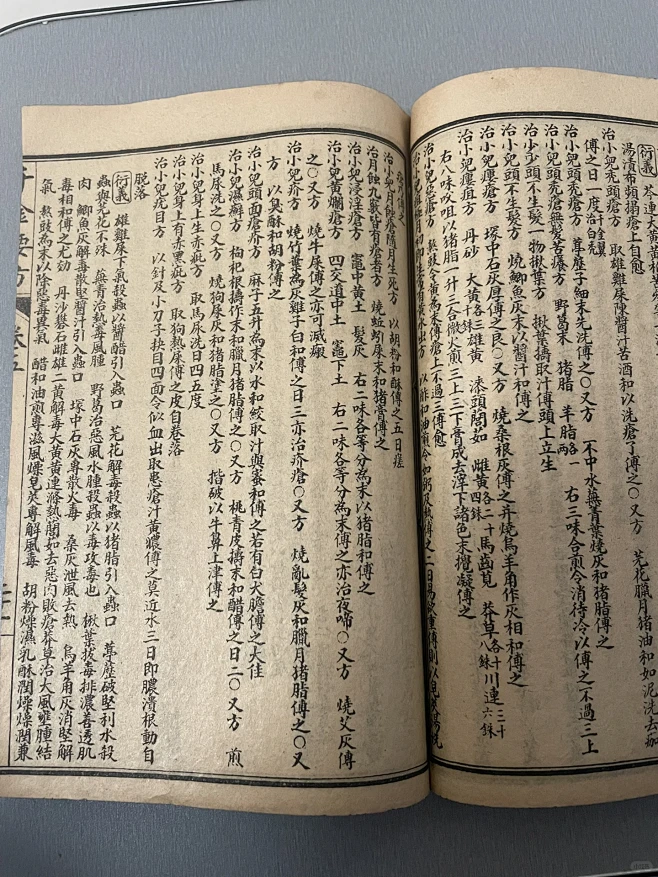 衍義 芩連大黃黃柏苦
湯漬布頻搨瘡上自愈
治小兒禿頭瘡方 取雄雞屎陳醬汁苦酒和以洗瘡了傅之○又方 芫花臘月豬油和如泥洗去痂
傅之日一度
治小兒頭禿瘡方 葶藶子細末先洗傅之○又方 不中水蕪菁葉燒灰和豬脂傅之
治小兒頭禿瘡無髮苦癢方 野葛末 豬脂 羊脂各一兩 右三味合煎令消待冷以傅之不過三上
治少小頭不生髮一物楸葉方 楸葉擣取汁傅頭上立生
治小兒頭不生髮方 燒鯽魚灰末以醬汁和傅之
治小兒癭瘡方 塚中石灰厚傅之良○又方 燒桑根灰傅之并燒烏羊角作灰相和傅之
治小兒瘻疽方 丹砂 大黃各五銖雄黃 漆頭䕡茹 雌黃各二十四銖 馬齒莧 莽草各十八銖川連三十六銖
右八味㕮咀以豬脂一升三合微火煎三上三下膏成去滓下諸色末攪凝傅之
治小兒惡瘡方 熬豉令黃為末傅瘡上不過三傅愈
治小兒月蝕瘡隨月生死方 以胡粉和酥傅之五日瘥
治月蝕九竅皆有瘡者方 燒蚯蚓屎末和豬膏傅之
治小兒浸淫瘡方 竈中黃土 髮灰 右二味各等分為末以豬脂和傅之
治小兒黃爛瘡方 四交道中土 竈下土 右二味各等分為末傅之亦治夜啼○又方 燒艾灰傅
之○又方 燒牛屎傅之亦可滅瘢
治小兒疥方 燒竹葉為灰雞子白和傅之日三亦治疥瘡○又方 燒亂髮灰和臘月豬脂傅之○又
方 以臭酥和胡粉傅之
治小兒頭面瘡疥方 麻子五升為末以水和絞取汁與蜜和傅之若有白犬膽傅之大佳
治小兒濕癬方 枸杞根擣作末和臘月豬脂傅之○又方 桃青皮擣末和醋傅之日二○又方 煎
馬尿洗之○又方 燒狗屎灰和豬脂塗之○又方 揩破以牛鼻上津傅之
治小兒身上生赤疵方 取馬尿洗日四五度
治小兒身上有赤黑疵方 取狗熱屎傅之皮自卷落
治小兒疣目方 以針及小刀子抉目四面令似血出取患瘡汁黃膿傅之莫近水三日即膿潰根動自
脫落
衍義 雄雞屎下氣殺蟲以醬醋引入蟲口 芫花解毒殺蟲以豬脂引入蟲口 葶藶破堅利水殺
蟲與芫花不殊 蕪菁治熱毒風腫 野葛治惡風水腫殺蟲以毒攻毒也 楸葉拔毒排膿善透肌
肉 鯽魚灰解毒散堅醬汁引入蟲口 塚中石灰專散火毒 桑灰泄風去熱 烏羊角灰消堅解
毒相和傅之尤効 丹沙礬石雌雄二黃解毒大黃黃連滌熱䕡茹去惡肉敗瘡莽草治大風壅腫結
氣 熬豉為末以除惡毒異氣 醋和油煎專滋風燥兒莧專解風毒 胡粉燥濕乳酥潤燥燥潤兼
千金要方 卷五